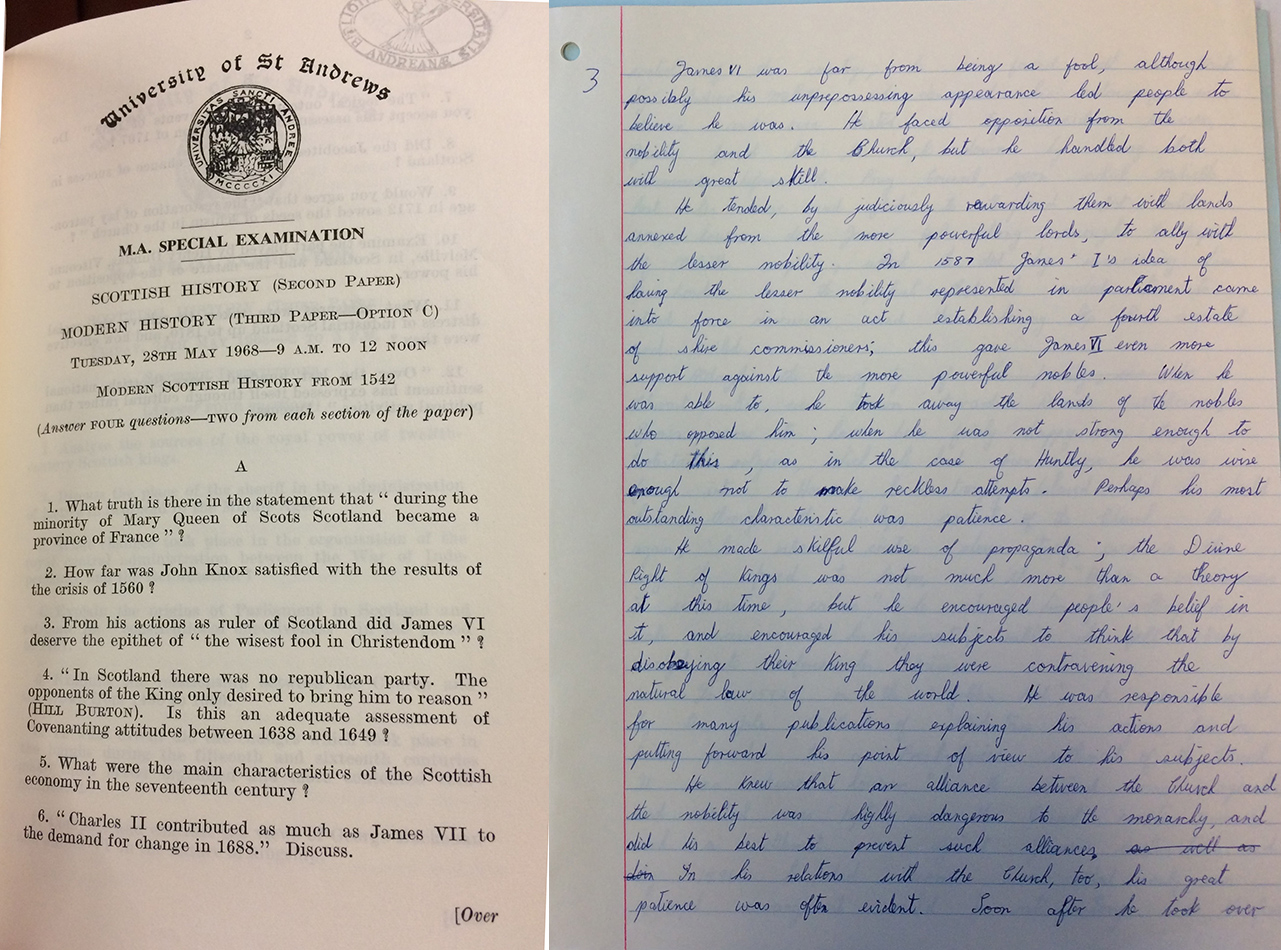 University of St Andrews
UNIVERSITAS SANCTI ANDREE
MCCCCXI
ANDREANÆ
M.A. SPECIAL EXAMINATION
SCOTTISH HISTORY (SECOND PAPER)
MODERN HISTORY (THIRD PAPER—OPTION C)
TUESDAY, 28TH MAY 1968—9 A.M. TO 12 NOON
MODERN SCOTTISH HISTORY FROM 1542
(Answer FOUR questions—TWO from each section of the paper)
A
1. What truth is there in the statement that “ during the
minority of Mary Queen of Scots Scotland became a
province of France ” ?
2. How far was John Knox satisfied with the results of
the crisis of 1560 ?
3. From his actions as ruler of Scotland did James VI
deserve the epithet of “ the wisest fool in Christendom ” ?
4. “ In Scotland there was no republican party. The
opponents of the King only desired to bring him to reason ”
(HILL BURTON). Is this an adequate assessment of
Covenanting attitudes between 1638 and 1649 ?
5. What were the main characteristics of the Scottish
economy in the seventeenth century ?
6. “ Charles II contributed as much as James VII to
the demand for change in 1688.” Discuss.
[Over
3
James VI was far from being a fool, although
possibly his unprepossessing appearance led people to
believe he was. He faced opposition from the
nobility and the Church, but he handled both
with great skill.
He tended, by judiciously rewarding them with lands
annexed from the more powerful lords, to ally with
the lesser nobility. In 1587 James' I's idea of
having the lesser nobility represented in parliament came
into force in an act establishing a fourth estate
of shire commissioners; this gave James VI even more
support against the more powerful nobles. When he
was able to, he took away the lands of the nobles
who opposed him; when he was not strong enough to
do this, as in the case of Huntly, he was wise
enough not to make reckless attempts. Perhaps his most
outstanding characteristic was patience.
He made skilful use of propaganda; the Divine
Right of Kings was not much more than a theory
at this time, but he encouraged people's belief in
it, and encouraged his subjects to think that by
disobeying their King they were contravening the
natural law of the world. He was responsible
for many publications explaining his actions and
putting forward his point of view to his subjects.
He knew that an alliance between the Church and
the nobility was highly dangerous to the monarchy, and
did his best to prevent such alliances, as well as
In his relations with the Church, too, his great
patience was often evident. Soon after he took over